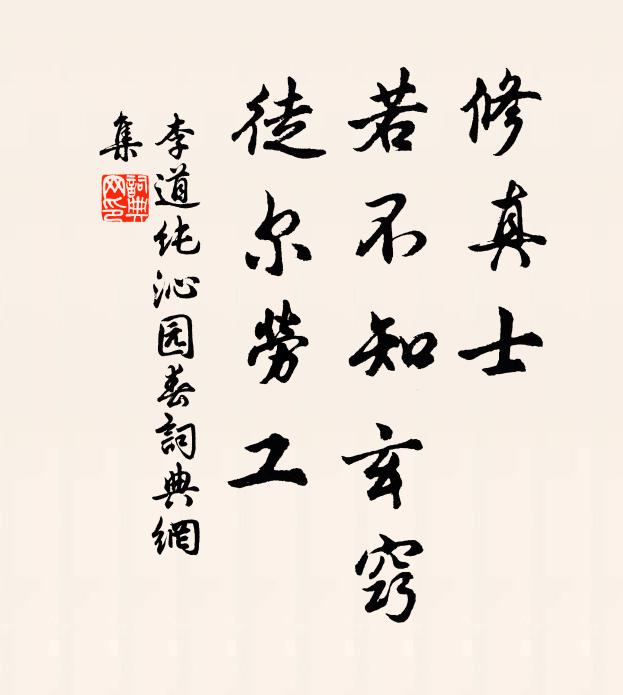 修真士
若不知玄窍
徒尔勞工
李道纯沁园春詞典網
集
詞典
网印